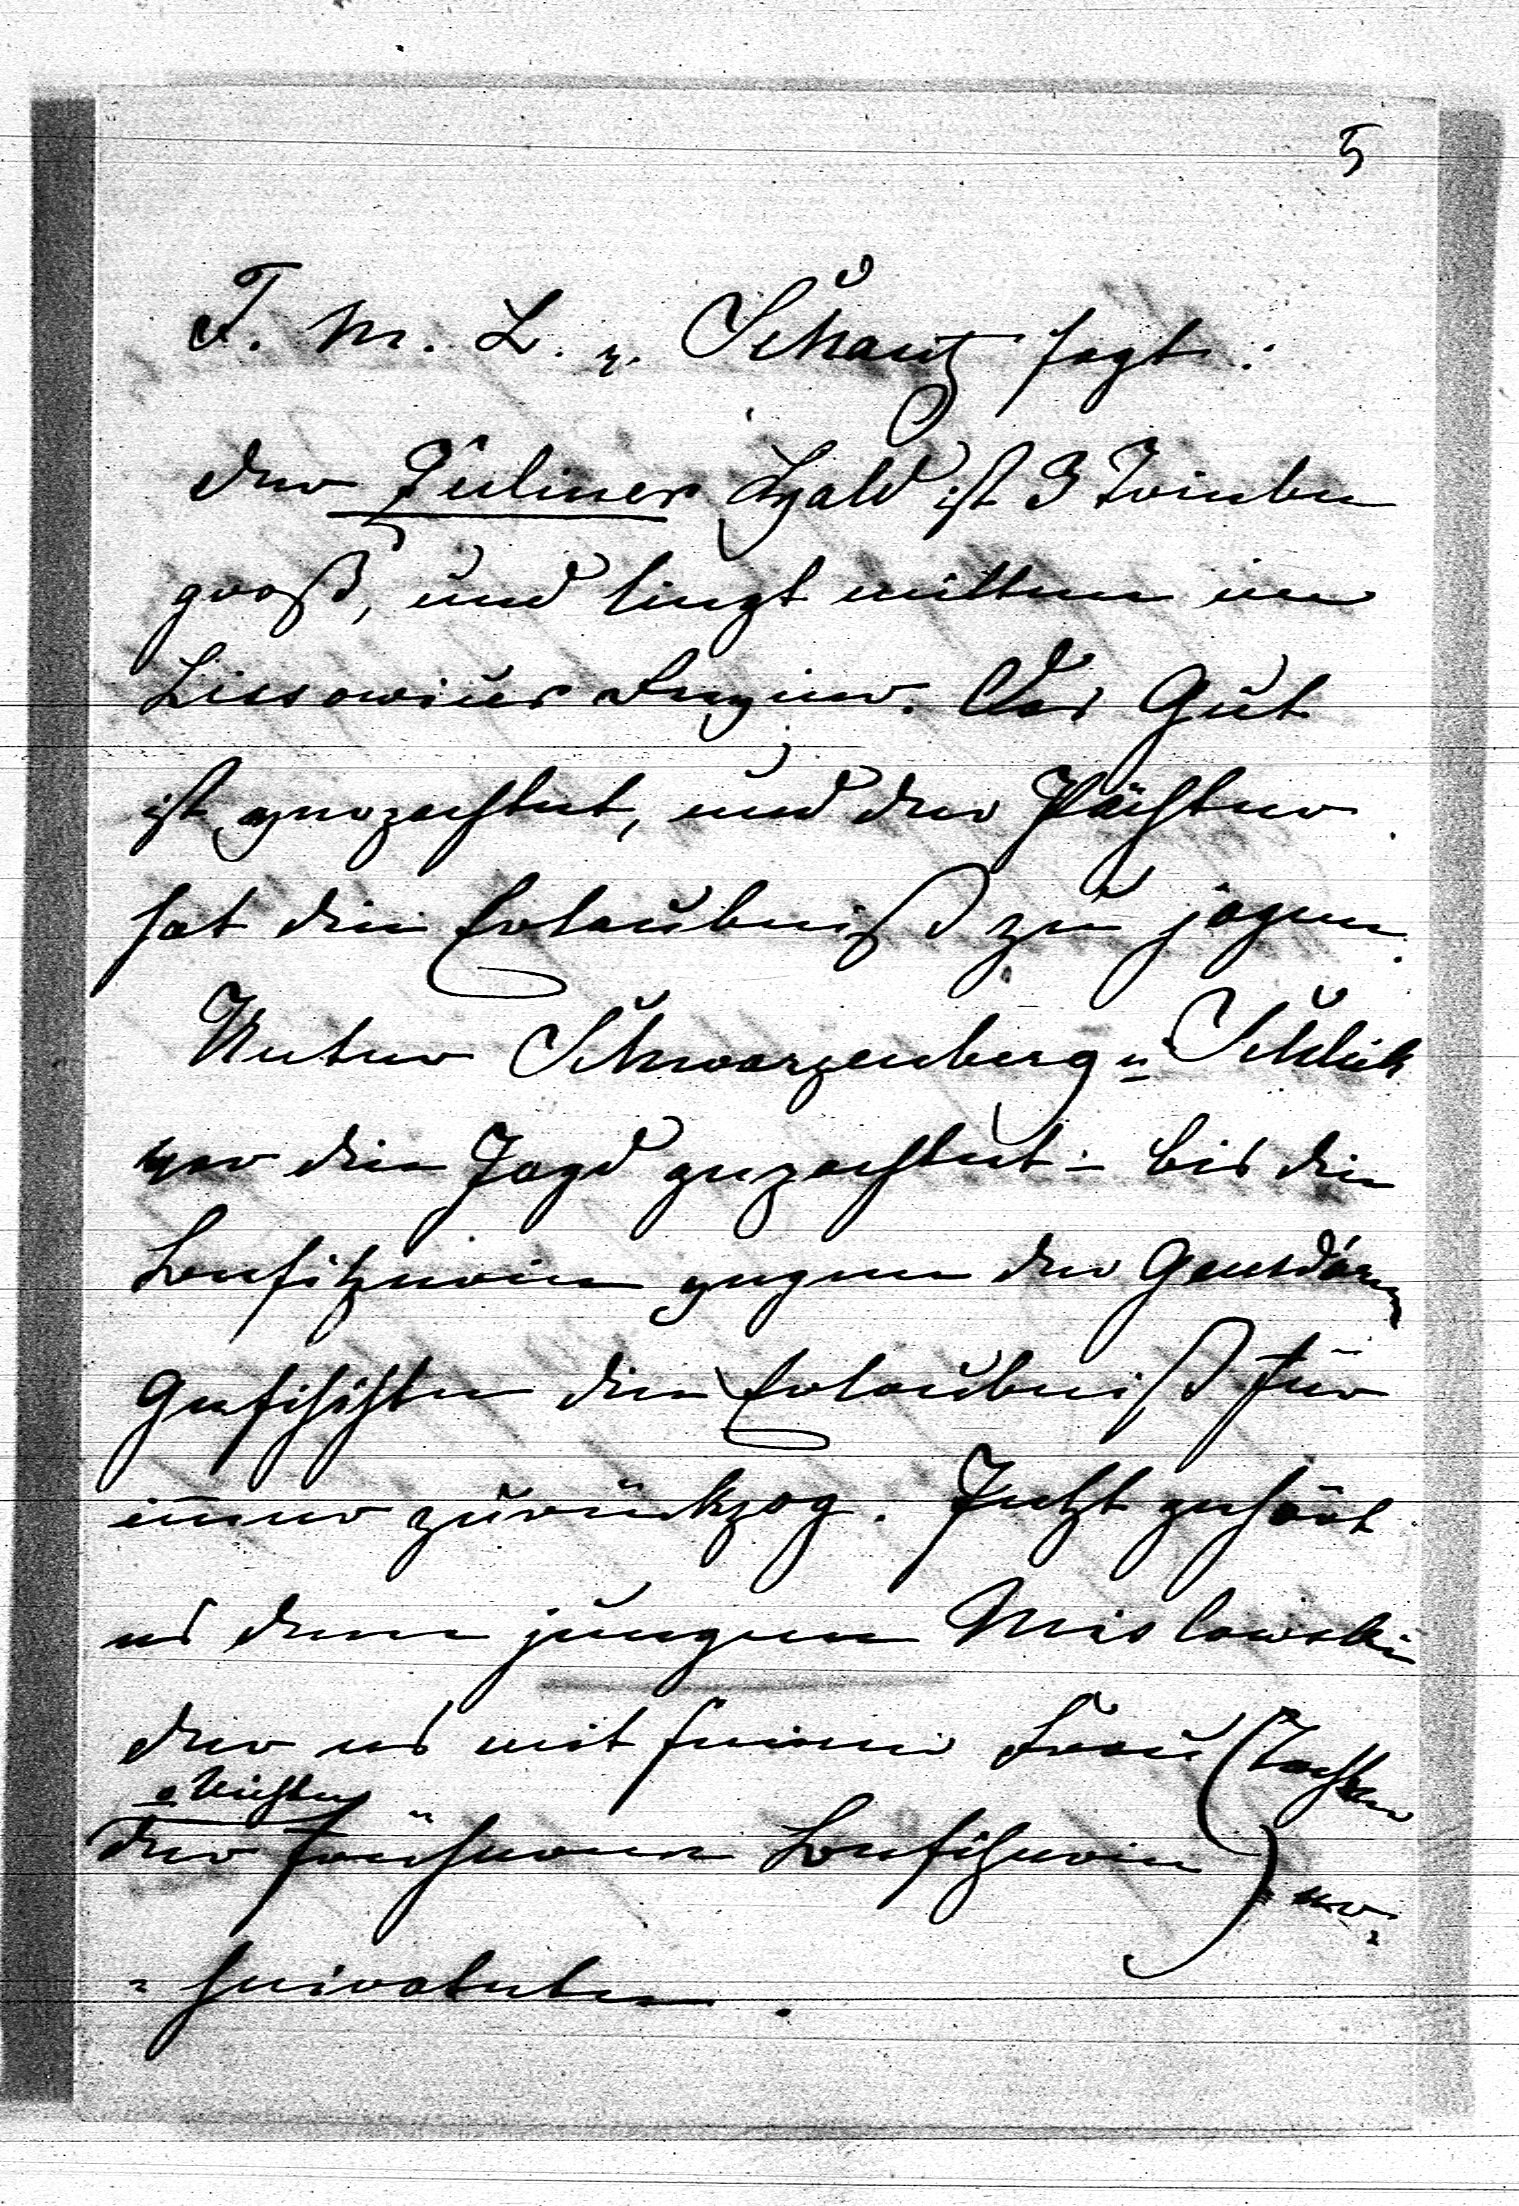 5
F. M. L. v. Schantz sagt:
der Juliner Wald ist 3 Trieben
groß, und liegt mitten im
Lissowicer Revier. Das Gut
ist verpachtet, und der Pächter
hat die Erlaubniß zu jagen.
Unter Schwarzenberg u Schlick
war die Jagd gepachtet – bis die
Besitzerin wegen der Gensdarm
Geschichten die Erlaubniß für
immer zurückzog. Jetzt gehört
es dem jungen Mislowski
der es mit seiner Frau (Tochter
o Nichte
der früheren Besitzerin) er-
-heiratete.